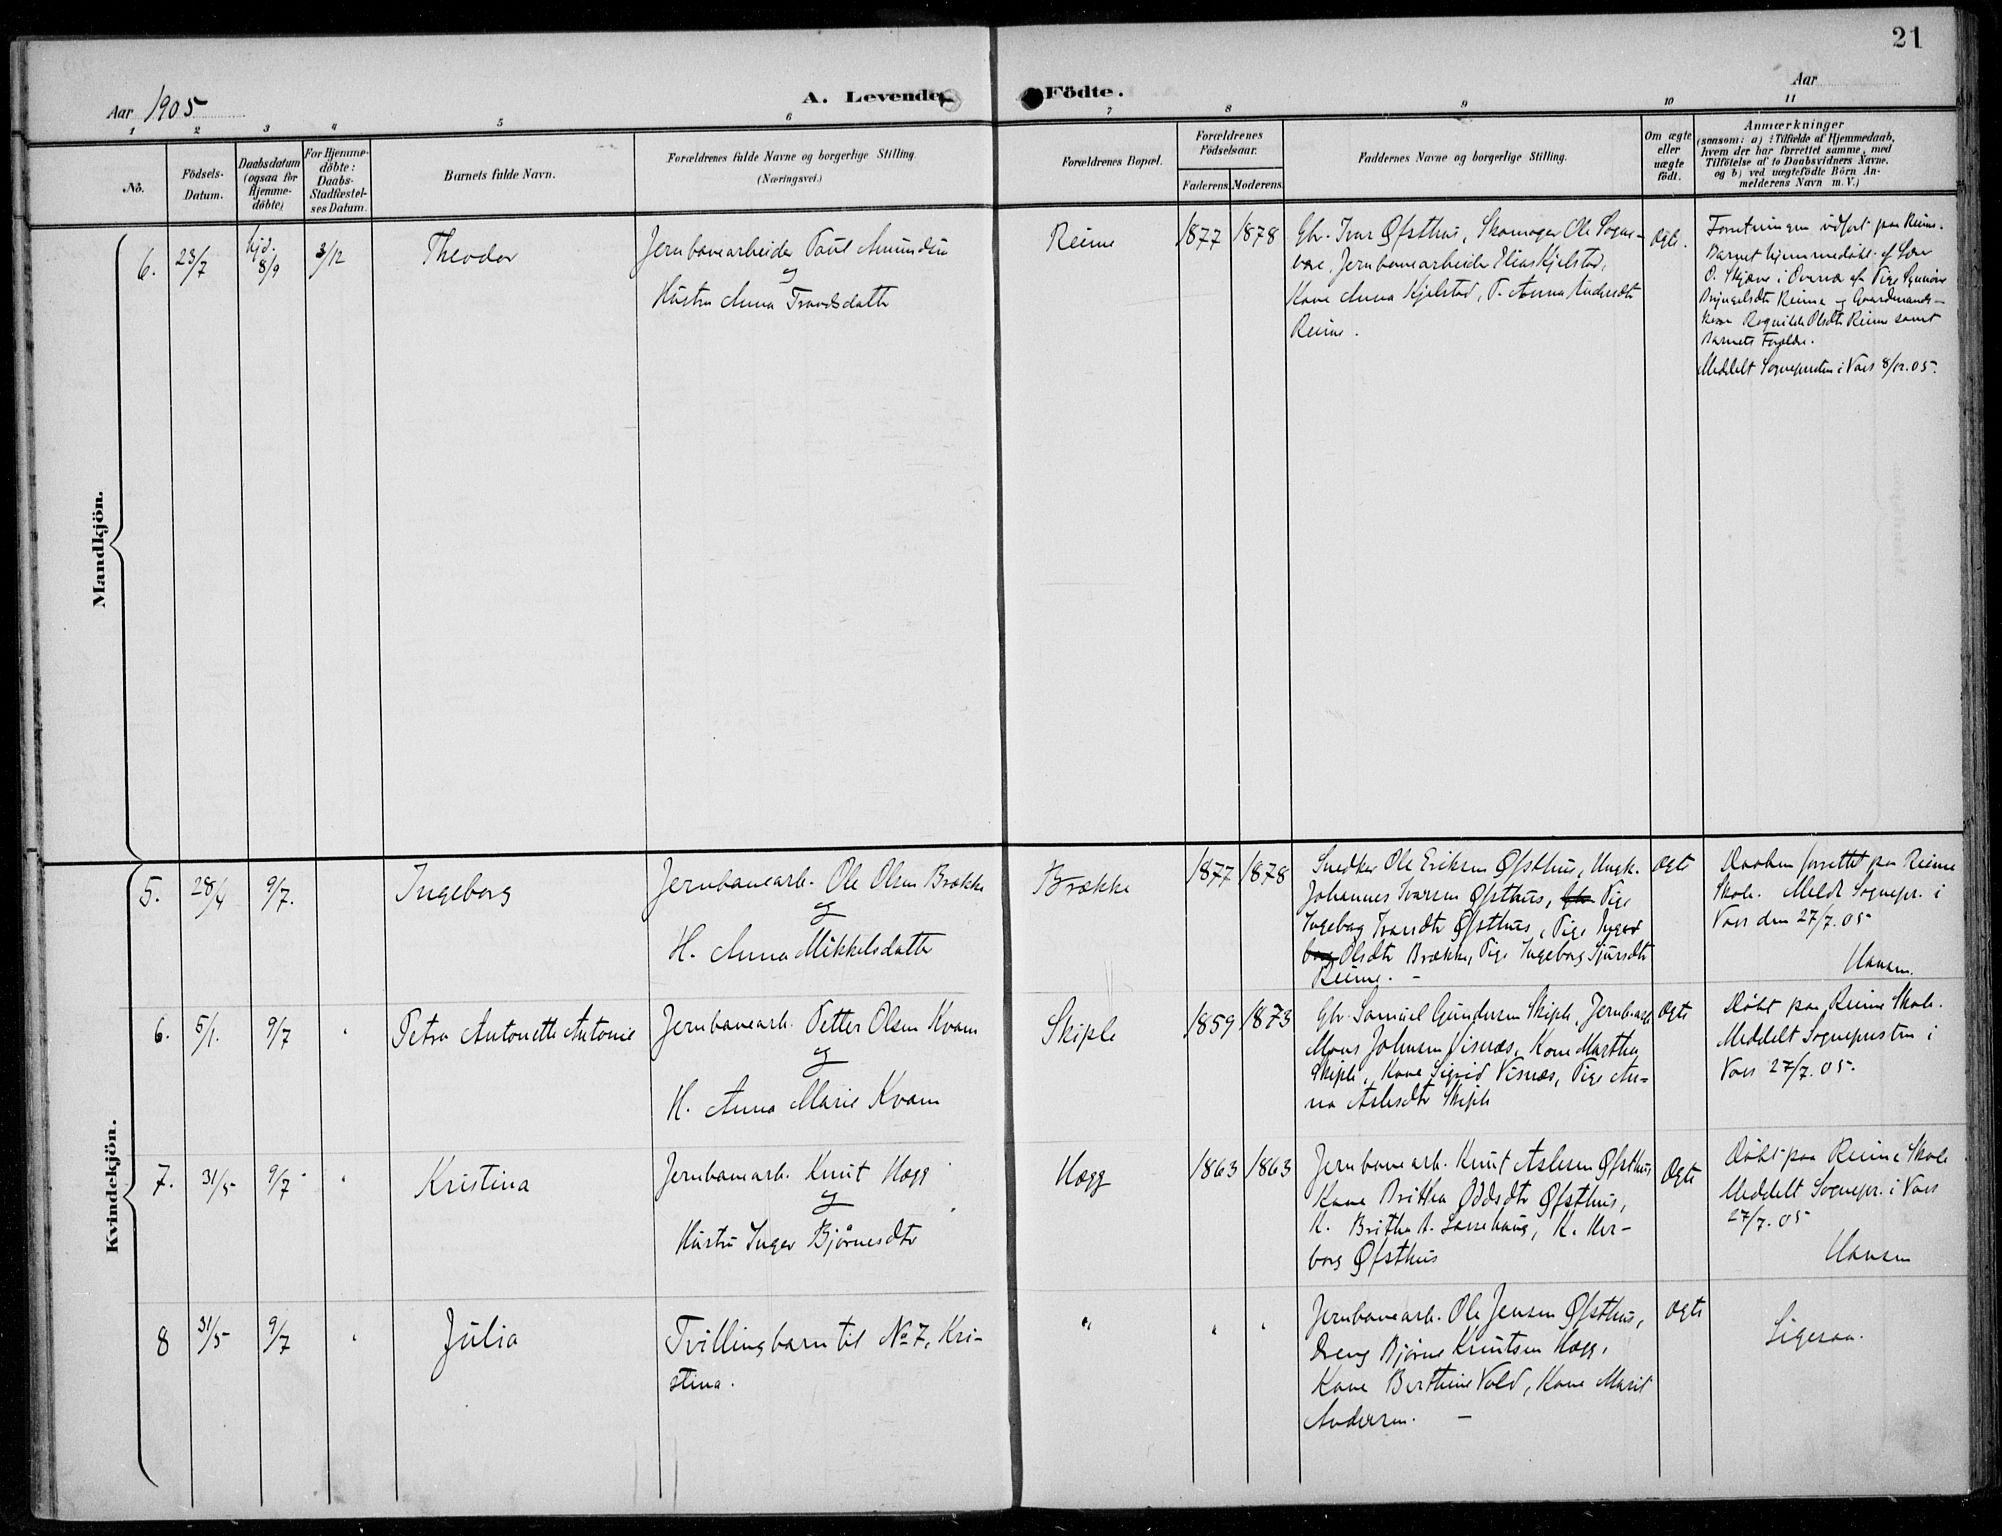 21
Aar 1905
A. Levende Födte.
Aar
1 2 3 4 5 6 7 8 9 10 11
No.
Födsels-
Datum.
Daabsdatum
(ogsaa for
Hjemme-
döbte)
For Hjemme-
döbte:
Daabs-
Stadfæstel-
ses Datum.
Barnets fulde Navn.
Forældrenes fulde Navne og borgerlige Stilling.
(Næringsvei.)
Forældrenes Bopæl.
Forældrenes
Födselsaar.
Faderens. Moderens.
Faddernes Navne og borgerlige Stilling.
Om ægte
eller
uægte
födt.
Anmærkninger
(saasom: a) i Tilfælde af Hjemmedaab,
hvem der har forrettet samme, med
Tilföielse af to Daabsvidners Navne,
og b) ved uægtefödte Börn An-
melderens Navn m. V.)
Mandkjön.
6.
23/7
hjd.
8/9
3/12
Theodor
Jernbanearbeider Paul Amundsen
og
Hustru Anna Trondsdatter
Reime
1877
1878
Gbr. Ivar Øfsthus, Skomager Ole Sogne-
Jernbanearbeider Elias Kjelstad,
Kone Anna Kjelstad, P. Anna Andersdtr
Reime.
Ægte.
Forretningen udført paa Reime.
Barnet hjemmedøbt af
O. i af Pige
Reime og Gaardmands-
kone Ragnilde Olsdtr Reime samt
Barnets Forældre.
Meddelt Sognepresten i Voss 8/12.05.
Kvindekjön.
5.
28/4
9/7.
Ingeborg
Jernbanearb. Ole Olsen Brække
og
H. Anna Mikkelsdatter
Brække
1877
1878
Snedker Ole Eriksen Øfsthus, Ungk.
Johannes Ivarsen Øfsthus, Gbr. Pige
Ingeborg Ivarsdtr Øfsthus, Pige Inger
borg Olsdtr Brække, Pige Ingeborg Sjursdtr
Reime. -
Ægte
Daaben forrettet paa Reime
Skole. Meldt Sognepr. i
Voss den 27/7.05
Hansen.
6.
5/1.
9/7
"
Petra Antonette Antonie
Jernbanearb. Petter Olsen Kvam
og
H. Anna Marie Kvam
Skiple
1859
1873
Gbr. Samuel Gundersen Skiple, Jernb.arb
Mons Johnsen Visnæs, Kone Martha
Skiple, Kone Sigrid Visnæs, Pige An-
na Aslesdtr Skiple
Ægte
Døbt paa Reime Skole.
Meddelt Sognepresten i
Voss 27/7.05.
7.
31/5
9/7
"
Kristina
Jernbanearb. Knut Hægg
og
Hustru Inger Bjørnesdtr
Hægg
1863
1863
Jernbanearb. Knut Aslesen Øfsthus
Kone Britha Oddsdtr Øfsthus,
K. Britha A. Lassehaug, K. Her-
borg Øfsthus
Ægte
Døbt paa Reime Skole
Meddelt Sognepr. i Voss
27/7.05
Hansen
8
31/5
9/7
"
Julia
Tvillingbarn til No 7, Kri-
stina.
"
"
"
Jernbanearb. Ole Jensen Øfsthus,
Dreng Bjørne Knutsen Hægg,
Kone Berthine Vold, Kone Marit
Andersen. -
Ægte
Ligesaa.